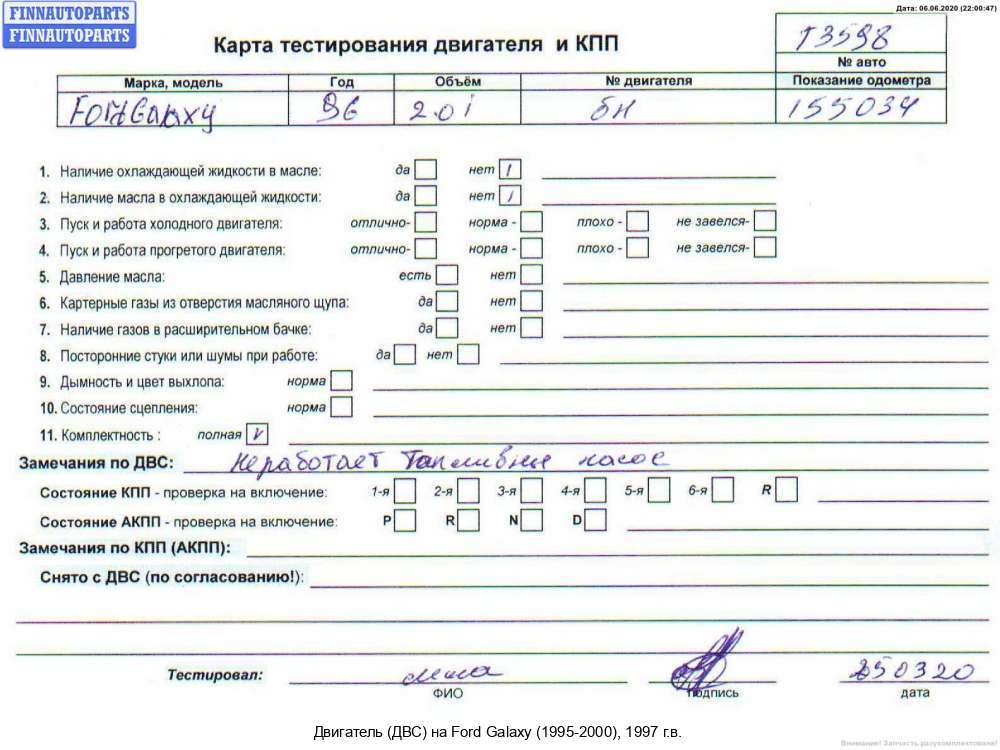 FINNAUTOPARTS
FINNAUTOPARTS
Дата: 06.06.2020 (22:00:47)
Карта тестирования двигателя и КПП
T3598
№ авто
Марка, модель Год Объём № двигателя Показание одометра
Ford Galaxy 96 2.0i бн 155034
1. Наличие охлаждающей жидкости в масле: да нет
2. Наличие масла в охлаждающей жидкости: да нет
3. Пуск и работа холодного двигателя: отлично- норма - плохо - не завелся-
4. Пуск и работа прогретого двигателя: отлично- норма - плохо - не завелся-
5. Давление масла: есть нет
6. Картерные газы из отверстия масляного щупа: да нет
7. Наличие газов в расширительном бачке: да нет
8. Посторонние стуки или шумы при работе: да нет
9. Дымность и цвет выхлопа: норма
10. Состояние сцепления: норма
11. Комплектность : полная V
Замечания по ДВС: не работает топливные насос
Состояние КПП - проверка на включение: 1-я 2-я 3-я 4-я 5-я 6-я R
Состояние АКПП - проверка на включение: P R N D
Замечания по КПП (АКПП):
Снято с ДВС (по согласованию!):
Тестировал: 250320
ФИО подпись дата
Двигатель (ДВС) на Ford Galaxy (1995-2000), 1997 г.в.
Внимание! Запчасть разукомплектована!